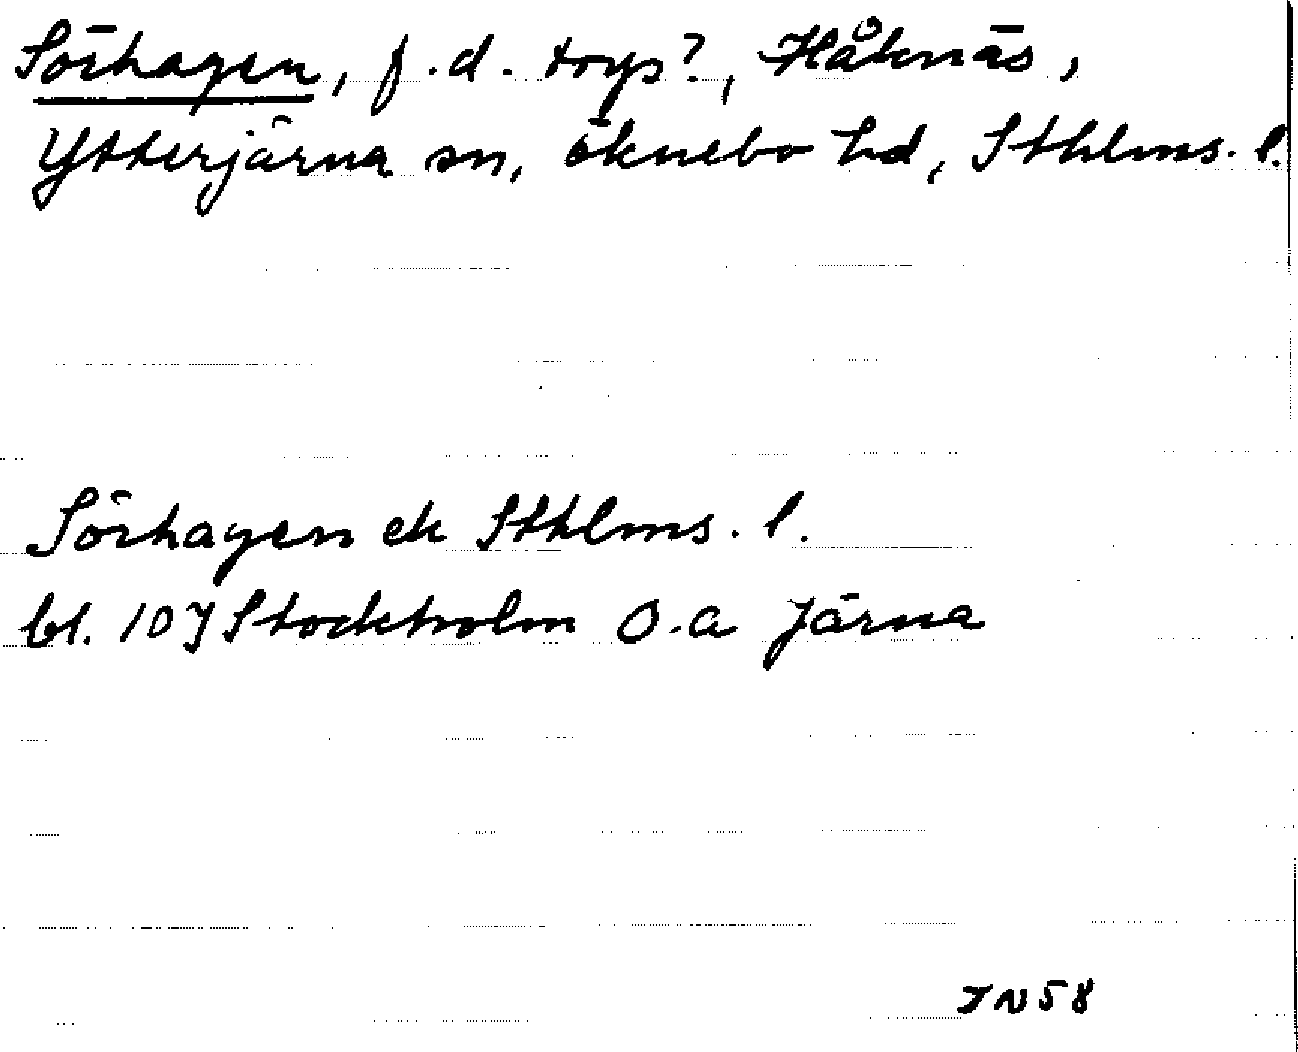 Sörhagen, f.d. torp?, Håknäs,
Ytterjärna sn, Öknebo hd, Sthlms. l.
Sörhagen ek Sthlms. l.
bl. 10J Stockholm O.a Järna
IN58